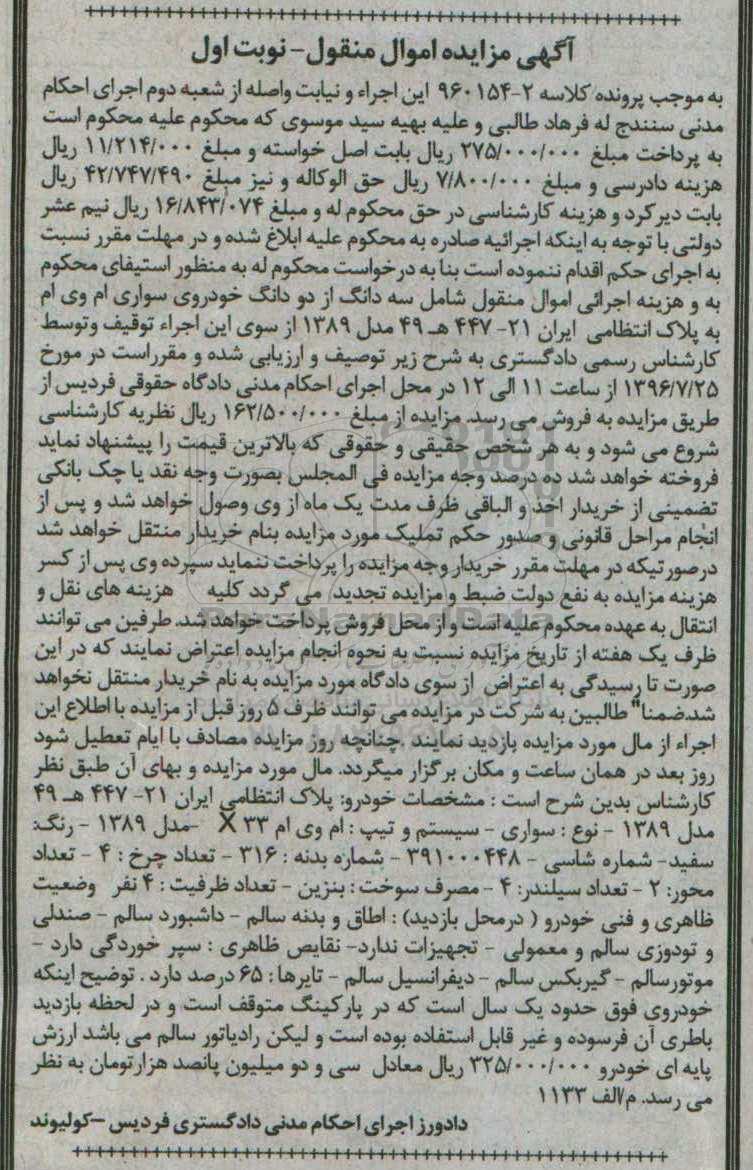 آگهی مزایده اموال منقول- نوبت اول
به موجب پرونده کلاسه ۲-۹۶۰۱۵۴ این اجراء و نیابت واصله از شعبه دوم اجرای احکام
مدنی سنندج له فرهاد طالبی و علیه بهیه سید موسوی که محکوم علیه محکوم است
به پرداخت مبلغ ۲۷۵/۰۰۰/۰۰۰ ریال بابت اصل خواسته و مبلغ ۱۱/۲۱۴/۰۰۰ ریال
هزینه دادرسی و مبلغ ۷/۸۰۰/۰۰۰ ریال حق الوکاله و نیز مبلغ ۴۲/۷۴۷/۴۹۰ ریال
بابت دیرکرد و هزینه کارشناسی در حق محکوم له و مبلغ ۱۶/۸۴۳/۰۷۴ ریال نیم عشر
دولتی با توجه به اینکه اجرائیه صادره به محکوم علیه ابلاغ شده و در مهلت مقرر نسبت
به اجرای حکم اقدام ننموده است بنا به درخواست محکوم له به منظور استیفای محکوم
به و هزینه اجرائی اموال منقول شامل سه دانگ از دو دانگ خودروی سواری ام وی ام
به پلاک انتظامی ایران ۲۱- ۴۴۷ هـ ۴۹ مدل ۱۳۸۹ از سوی این اجراء توقیف وتوسط
کارشناس رسمی دادگستری به شرح زیر توصیف و ارزیابی شده و مقرراست در مورخ
۱۳۹۶/۷/۲۵ از ساعت ۱۱ الی ۱۲ در محل اجرای احکام مدنی دادگاه حقوقی فردیس از
طریق مزایده به فروش می رسد. مزایده از مبلغ ۱۶۲/۵۰۰/۰۰۰ ریال نظریه کارشناسی
شروع می شود و به هر شخص حقیقی و حقوقی که بالاترین قیمت را پیشنهاد نماید
فروخته خواهد شد ده درصد وجه مزایده فی المجلس بصورت وجه نقد یا چک بانکی
تضمینی از خریدار اخذ و الباقی ظرف مدت یک ماه از وی وصول خواهد شد و پس از
انجام مراحل قانونی و صدور حکم تملیک مورد مزایده بنام خریدار منتقل خواهد شد
درصورتیکه در مهلت مقرر خریدار وجه مزایده را پرداخت ننماید سپرده وی پس از کسر
هزینه مزایده به نفع دولت ضبط و مزایده تجدید می گردد کلیه هزینه های نقل و
انتقال به عهده محکوم علیه است و از محل فروش پرداخت خواهد شد. طرفین می توانند
ظرف یک هفته از تاریخ مزایده نسبت به نحوه انجام مزایده اعتراض نمایند که در این
صورت تا رسیدگی به اعتراض از سوی دادگاه مورد مزایده به نام خریدار منتقل نخواهد
شد.ضمنا" طالبین به شرکت در مزایده می توانند ظرف ۵ روز قبل از مزایده با اطلاع این
اجراء از مال مورد مزایده بازدید نمایند .چنانچه روز مزایده مصادف با ایام تعطیل شود
روز بعد در همان ساعت و مکان برگزار میگردد. مال مورد مزایده و بهای آن طبق نظر
کارشناس بدین شرح است : مشخصات خودرو: پلاک انتظامی ایران ۲۱- ۴۴۷ هـ ۴۹
مدل ۱۳۸۹ - نوع : سواری - سیستم و تیپ : ام وی ام X ۳۳ -مدل ۱۳۸۹ - رنگ:
سفید- شماره شاسی - ۳۹۱۰۰۰۴۴۸ - شماره بدنه : ۳۱۶ - تعداد چرخ : ۴ - تعداد
محور: ۲ - تعداد سیلندر: ۴ - مصرف سوخت : بنزین - تعداد ظرفیت : ۴ نفر وضعیت
ظاهری و فنی خودرو ( درمحل بازدید) : اطاق و بدنه سالم - داشبورد سالم - صندلی
و تودوزی سالم و معمولی - تجهیزات ندارد- نقایص ظاهری : سپر خوردگی دارد -
موتورسالم - گیربکس سالم - دیفرانسیل سالم - تایرها : ۶۵ درصد دارد . توضیح اینکه
خودروی فوق حدود یک سال است که در پارکینگ متوقف است و در لحظه بازدید
باطری آن فرسوده و غیر قابل استفاده بوده است و لیکن رادیاتور سالم می باشد ارزش
پایه ای خودرو ۳۲۵/۰۰۰/۰۰۰ ریال معادل سی و دو میلیون پانصد هزارتومان به نظر
می رسد. م/الف ۱۱۳۳
دادورز اجرای احکام مدنی دادگستری فردیس -کولیوند